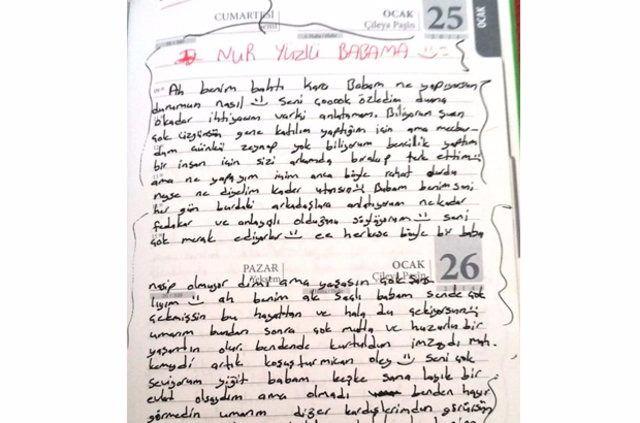 CUMARTESİ OCAK 25
Çileya Paşin OCAK
NUR YÜZLÜ BABAMA
Ah benim bahtı kara Babam ne yapıyorsun
durumun nasıl seni çoocok özledim sana
o kadar ihtiyacım varki anlatamam. Biliyorum şuan
çok üzgünsün gene katılım yaptığım için ama mecbur-
dum çünkü zeynep yok biliyorum bencillik yaptım
bir insan için sizi arkamda bırakıp terk ettim
ama ne yapayım içim anca böyle rahat durdu
neyse ne diyelim kader utansın Babam benim seni
her gün burdaki arkadaşlara anlatıyorum ne kadar
fedakar ve anlayışlı olduğunu söylüyorum seni
çok merak ediyorlar ee herkese böyle bir baba
PAZAR OCAK 26
Yekşem Çileya Paşin
nasip olmuyor dimi ama yaşasın çok şans
lıyım ah benim ak saçlı babam sende çok
çekmişsin bu hayattan ve hala da çekiyorsun
umarım bundan sonra çok mutlu ve huzurlu bir
yaşantın olur. bendende kurtuldun imzaydı mah.
kemeydi artık koşuşturmican oley seni çok
seviyorum yiğit babam keşke sana layık bir
evlat olsaydım ama olmadı benden hayır
görmedin umarım diğer kardeşlerimden görürsün